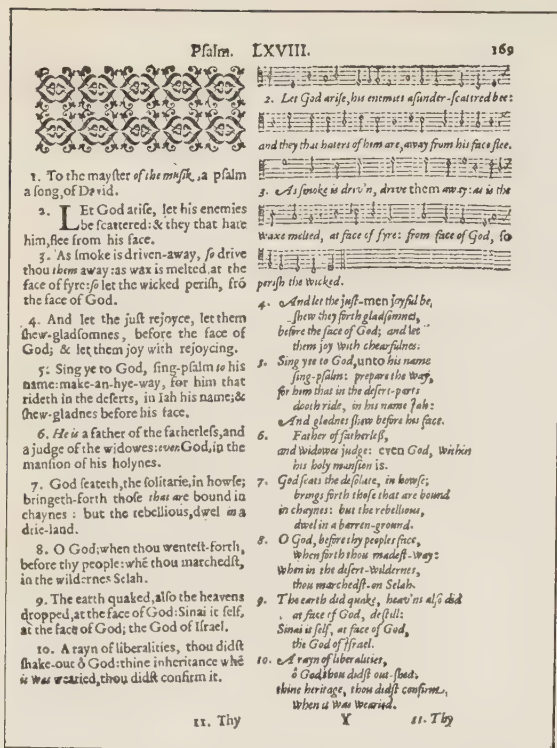 Pſalm. LXVIII. 169
1. To the mayſter of the muſik, a psalm
a ſong, of David.
2. LEt God ariſe, let his enemies
be ſcattered: & they that hate
him, flee from his face.
3. As ſmoke is driven-away, ſo drive
thou them away: as wax is melted, at the
face of fyre: ſo let the wicked periſh, frõ
the face of God.
4. And let the juſt rejoyce, let them
ſhew-gladſomnes, before the face of
God; & let them joy with rejoycing.
5. Sing ye to God, ſing-pſalm to his
name: make-an-hye-way, for him that
rideth in the deſerts, in Iah his name; &
ſhew-gladnes before his face.
6. He is a father of the fatherleſs, and
a judge of the widowes: even God, in the
manſion of his holynes.
7. God ſeateth, the ſolitarie, in howſe;
bringeth-forth thoſe that are bound in
chaynes : but the rebellious, dwel in a
drie-land.
8. O God; when thou wenteſt-forth,
before thy people: whẽ thou marchedſt,
in the wildernes Selah.
9. The earth quaked, alſo the heavens
dropped, at the face of God: Sinai it ſelf,
at the face of God; the God of Iſrael.
10. A rayn of liberalities, thou didſt
ſhake-out ô God: thine inheritance whẽ
it was wearied, thou didſt confirm it.
11. Thy
2. Let God ariſe, his enemies aſunder-ſcattred bee:
and they that haters of him are, away from his face flee.
3. As ſmoke is driv'n, drive them away: as is the
waxe melted, at face of fyre: from face of God, ſo
periſh the wicked.
4. And let the juſt-men joyful be,
ſhew they forth gladſomnes,
before the face of God; and let
them joy with chearfulnes.
5. Sing yee to God, unto his name
ſing-pſalm: prepare the way,
for him that in the deſert-parts
dooth ride, in his name Jah:
And gladnes ſhew before his face.
6. Father of fatherleſs,
and widowes judge: even God, within
his holy manſion is.
7. God ſeats the deſolate, in howſe;
brings forth thoſe that are bound
in chaynes: but the rebellious,
dwel in a barren-ground.
8. O God, before thy peoples face,
when forth thou madeſt-way:
when in the deſert-wildernes,
thou marchedſt-on Selah.
9. The earth did quake, heav'ns alſo did
at face of God, deſtill:
Sinai it ſelf, at face of God,
the God of Iſrael.
10. A rayn of liberalities,
ô God thou didſt out-ſhed:
thine heritage, thou didſt confirm,
when it was wearied.
Y 11. Thy